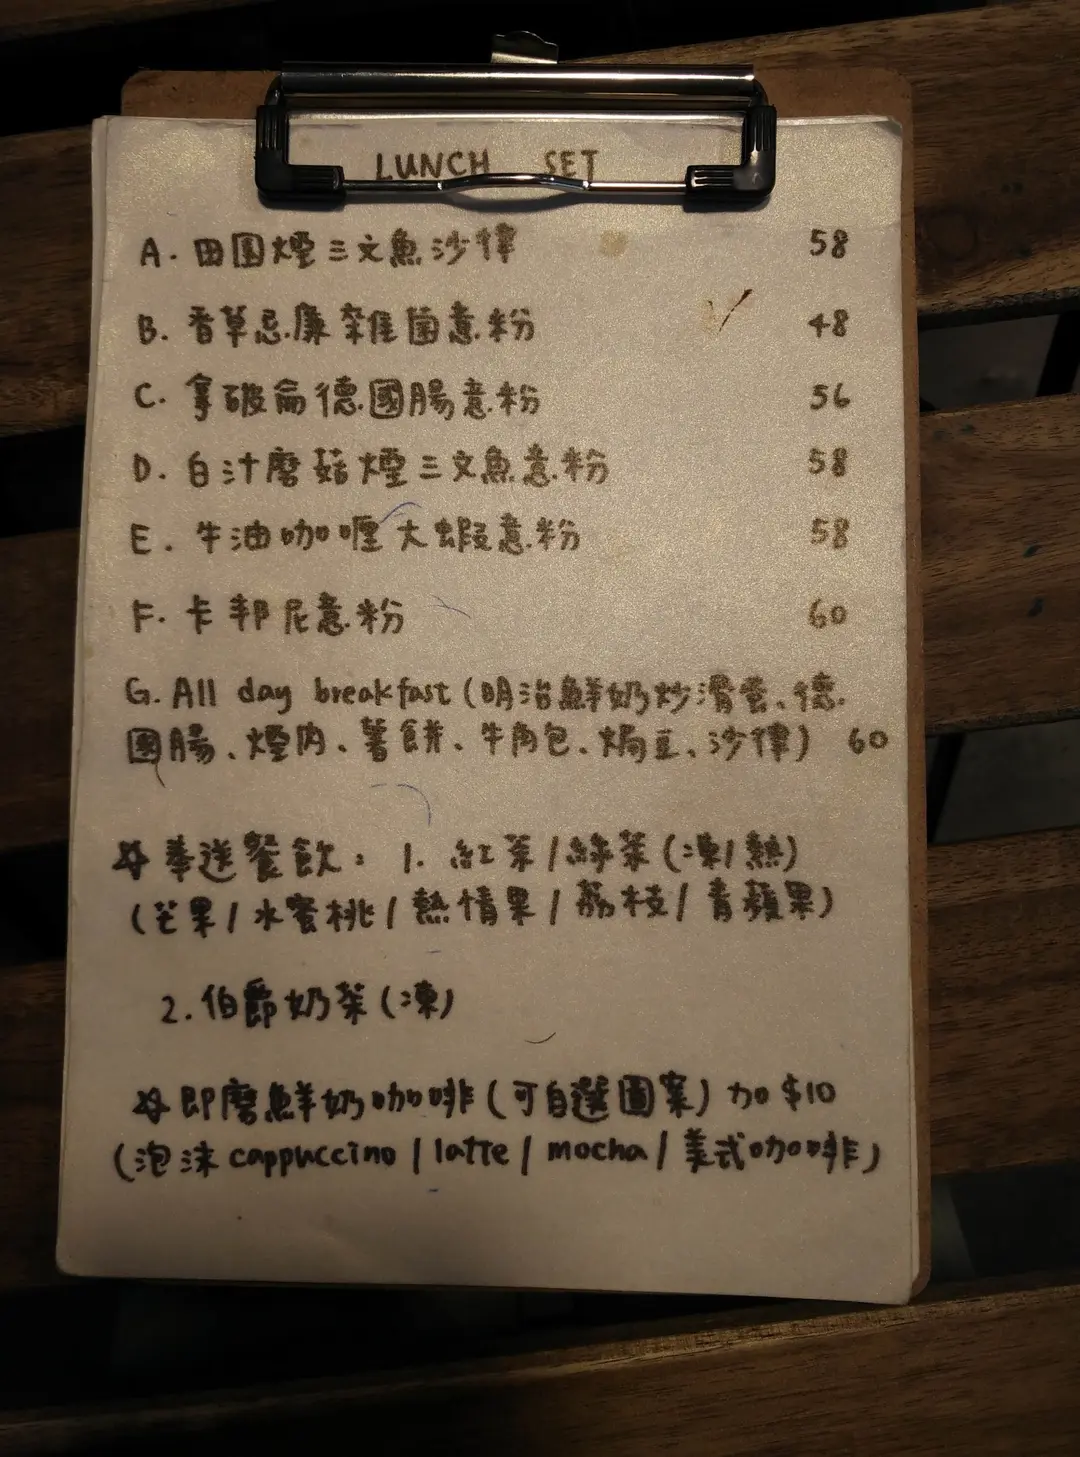 LUNCH SET
A. 田園煙三文魚沙律 58
B. 香草忌廉雜菌意粉 48
C. 拿破崙德國腸意粉 56
D. 白汁磨菇煙三文魚意粉 58
E. 牛油咖喱大蝦意粉 58
F. 卡邦尼意粉 60
G. All day breakfast (明治鮮奶炒滑蛋、德
國腸、煙肉、薯餅、牛角包、焗豆、沙律) 60
奉送餐飲: 1. 紅茶/綠茶(凍/熱)
(芒果/水蜜桃/熱情果/荔枝/青蘋果)
2. 伯爵奶茶(凍)
即磨鮮奶咖啡(可自選圖案)加$10
(泡沫cappuccino/latte/mocha/美式咖啡)